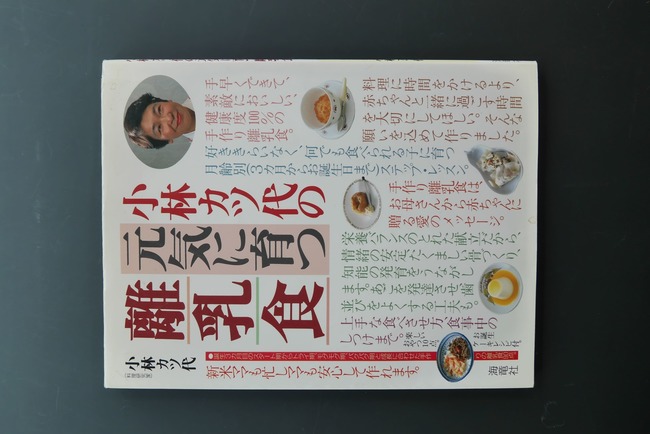 手早くできて、
素敵においしい、
健康度100%の
手作り離乳食。
料理に時間をかけるより、
赤ちゃんと一緒に過ごす時間
を大切にしてほしい。そんな
願いを込めて作りました。
好ききらいなく、何でも食べられる子に育つ
月齢別(3カ月からお誕生日まで)ステップ・レッスン。
手作り離乳食は、
お母さんから赤ちゃんに
贈る愛のメッセージ。
小林カツ代の
元気に育つ
離乳食
栄養バランスのとれた献立だから、
情緒の安定、たくましい骨づくり、
知能の発育をうながし
ます。あごを発達させ歯
並びをよくする工夫も。
上手な食べさせ方、食事中の
しつけまで。
楽しい
おやつ10点、
お誕生
小林カツ代
(料理研究家)
新米ママも忙しママも安心して作れます。
海竜社